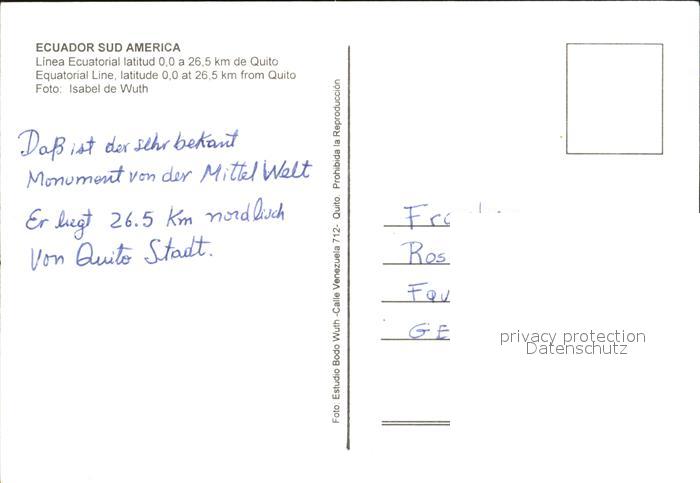 ECUADOR SUD AMERICA
Línea Ecuatorial latitud 0,0 a 26,5 km de Quito
Equatorial Line, latitude 0,0 at 26,5 km from Quito
Foto: Isabel de Wuth
Daß ist der sehr bekant
Monument von der Mittel Welt
Er liegt 26.5 Km nordlisch
Von Quito Stadt.
Foto: Estudio Bodo Wuth -Calle Venezuela 712- Quito. Prohibida la Reproducción
Ros
GE
privacy protection
Datenschutz